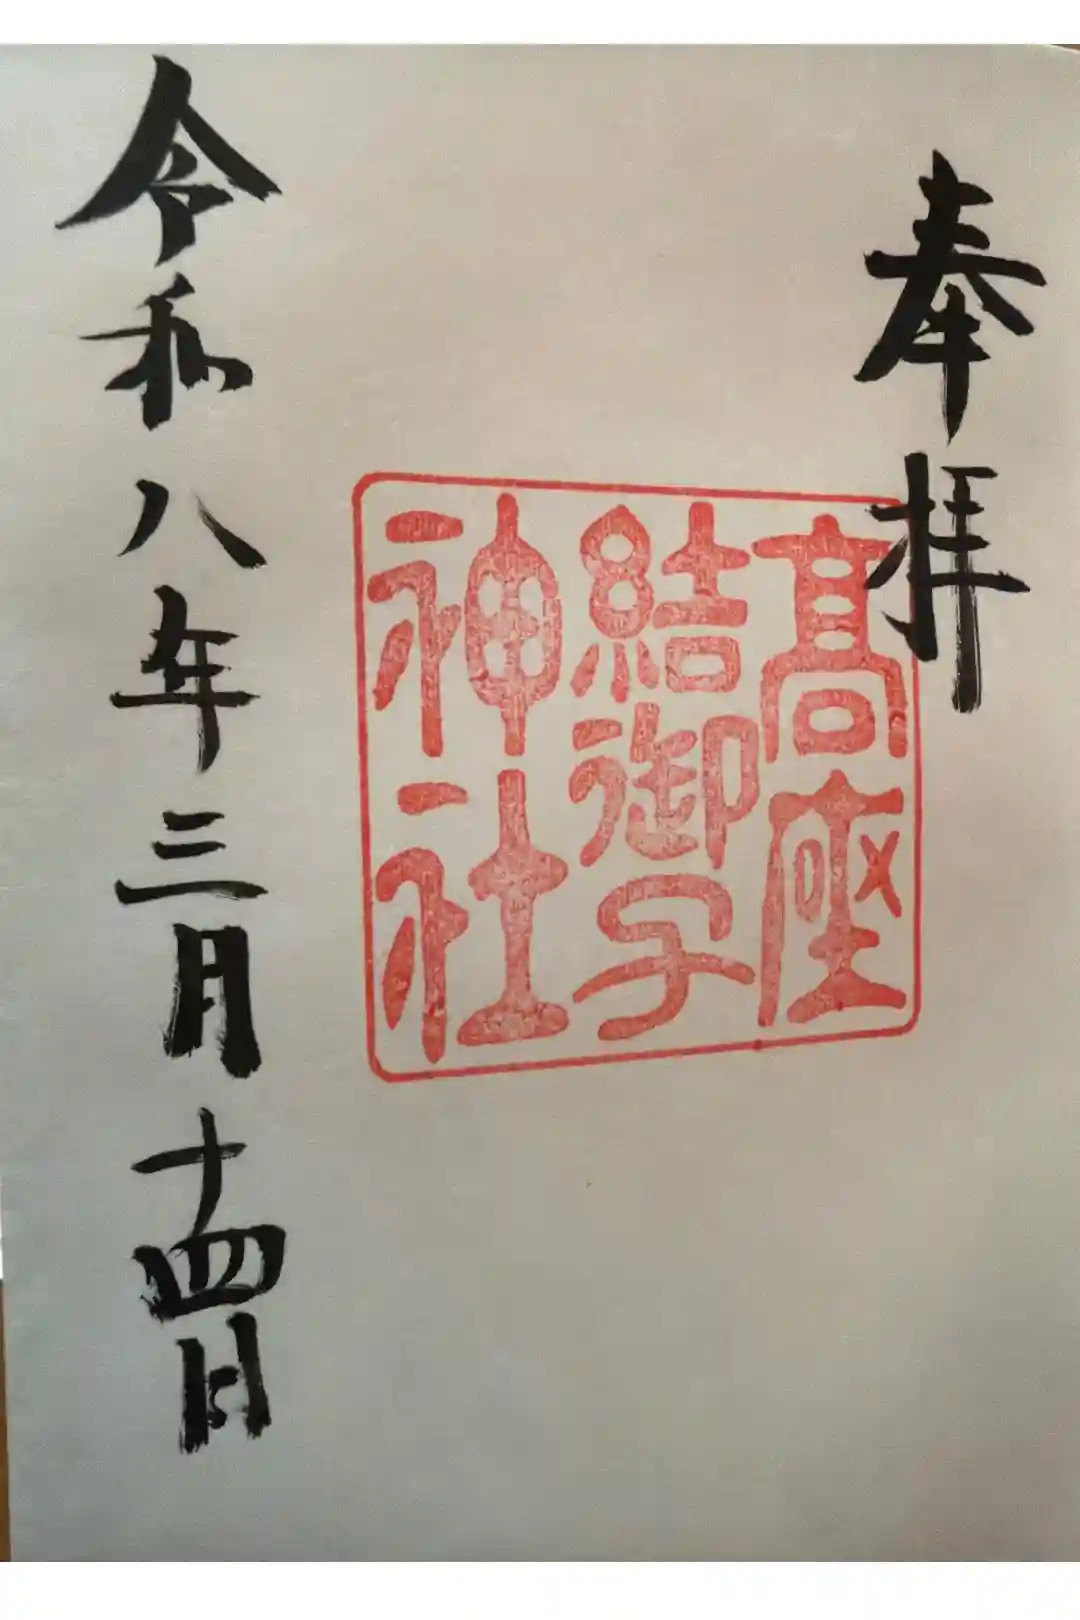 奉拝
高座
結御子
神社
令和八年三月十四日